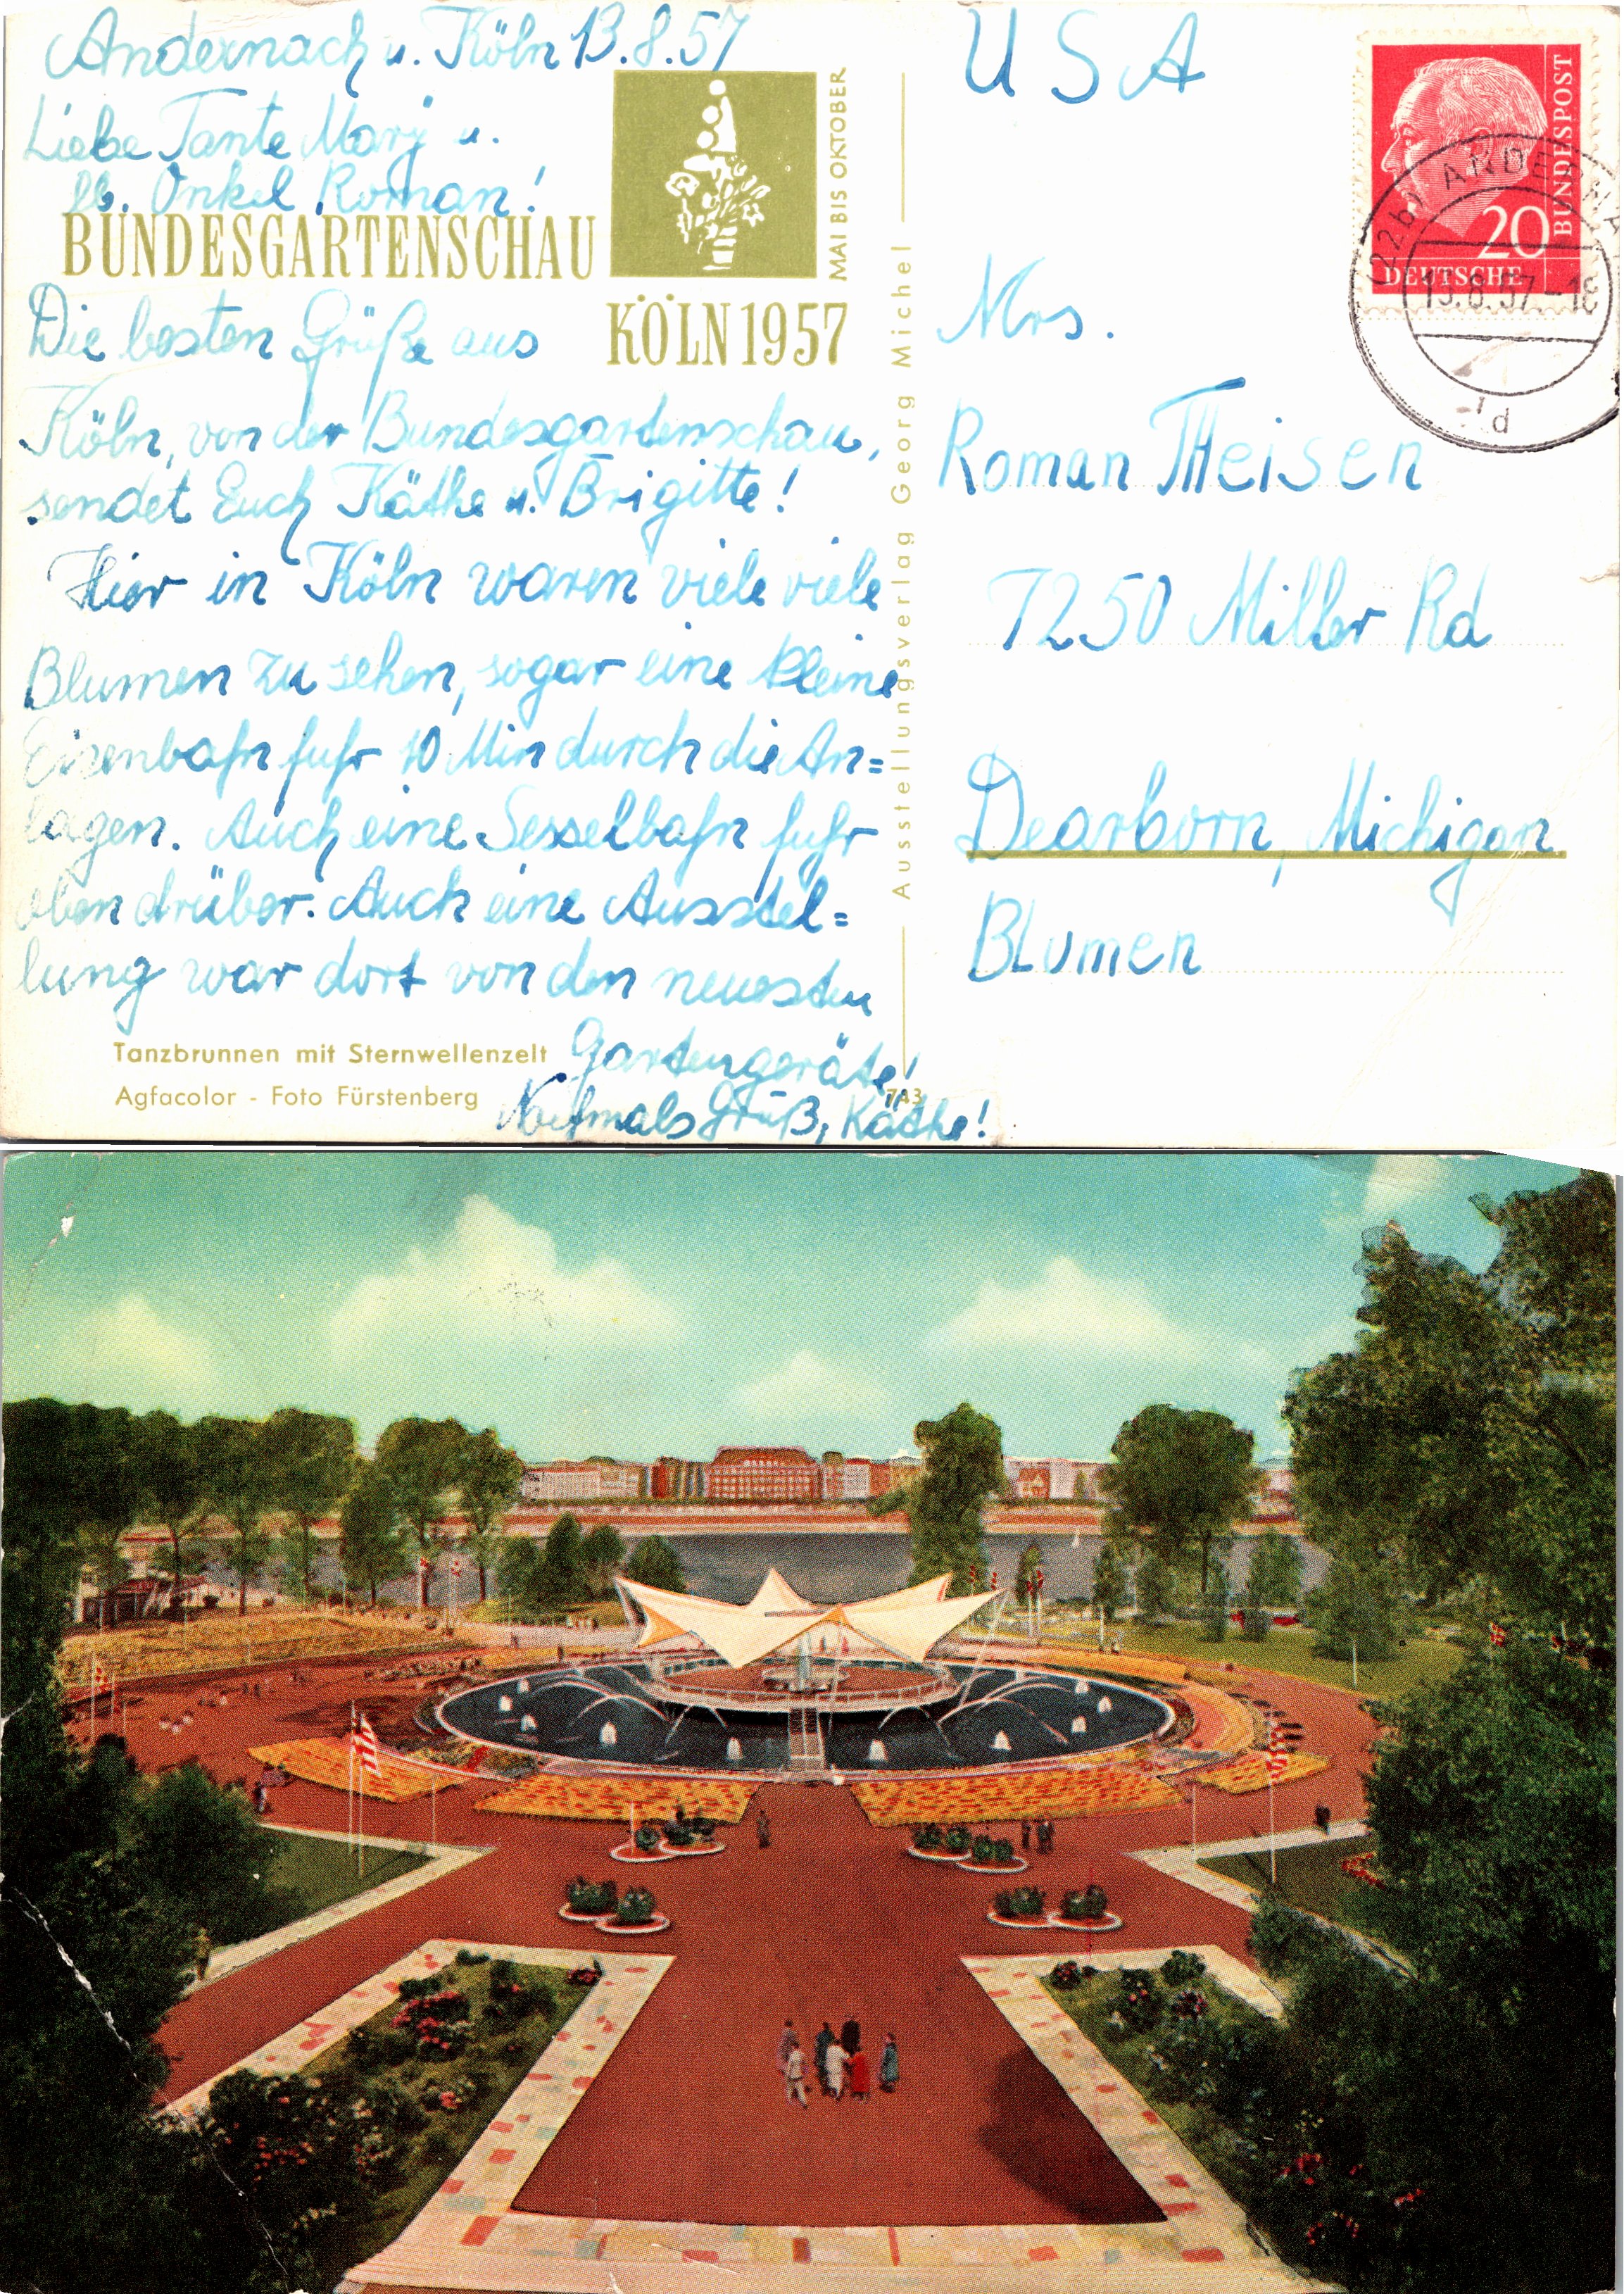 Andernach u. Köln 13.8.57
Liebe Tante Mary u.
lb. Onkel Roman!
BUNDESGARTENSCHAU
KÖLN 1957
MAI BIS OKTOBER
Die besten Grüße aus
Köln, von der Bundesgartenschau,
sendet Euch Käthe u. Brigitte!
Hier in Köln waren viele viele
Blumen zu sehen, sogar eine kleine
Eisenbahn fuhr 10 Min durch die An=
lagen. Auch eine Sesselbahn fuhr
oben drüber. Auch eine Ausstel=
lung war dort von den neuesten
Gartengeräte!
Nochmals Gruß, Käthe!
Tanzbrunnen mit Sternwellenzelt
Agfacolor - Foto Fürstenberg
743
Ausstellungsverlag Georg Michel
USA
Mrs.
Roman Theisen
7250 Miller Rd
Dearborn, Michigan
Blumen
DEUTSCHE
BUNDESPOST
20
(22b) ANDERNA
13.8.57-18
d